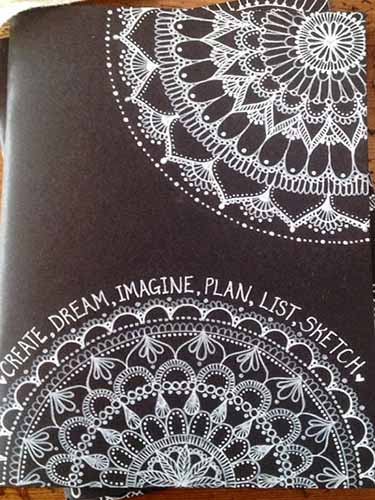 CREATE, DREAM, IMAGINE, PLAN, LIST, SKETCH